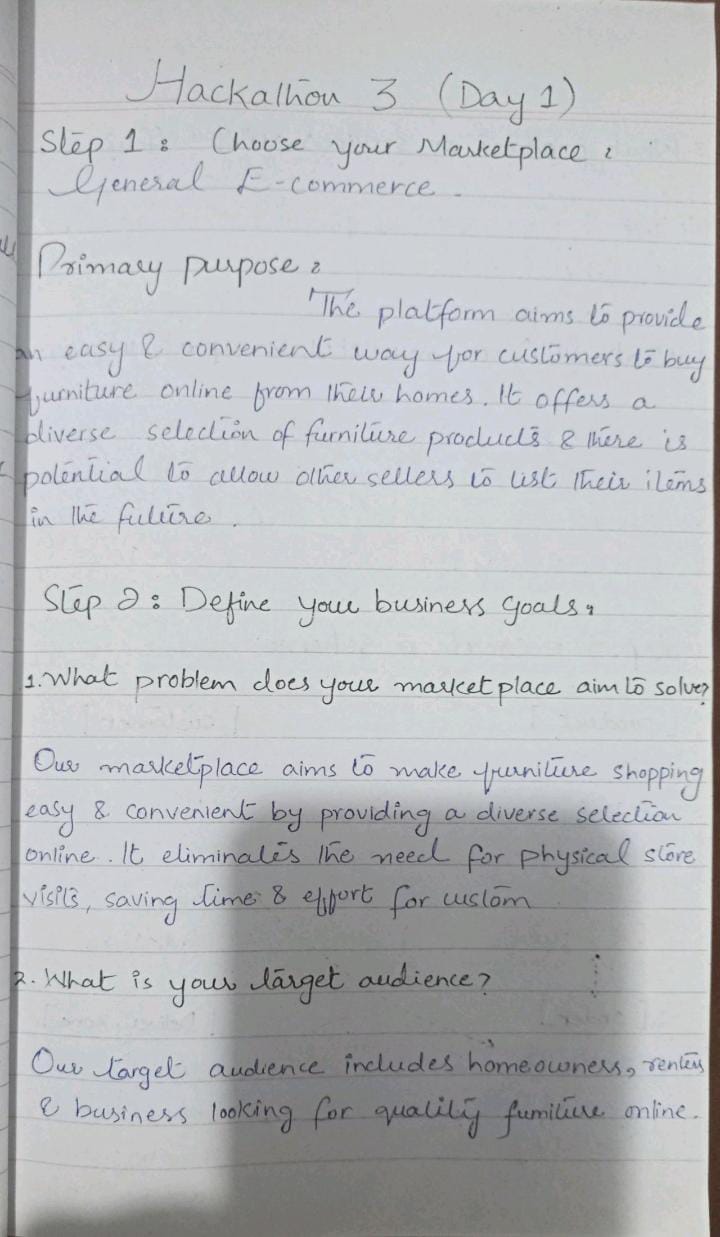 Hackathon 3 (Day 1)
Step 1: Choose your Marketplace:
General E-commerce.
Primary purpose:
The platform aims to provide
an easy & convenient way for customers to buy
furniture online from their homes. It offers a
diverse selection of furniture products & there is
potential to allow other sellers to list their items
in the future.
Step 2: Define your business goals:
1. What problem does your market place aim to solve?
Our marketplace aims to make furniture shopping
easy & convenient by providing a diverse selection
online. It eliminates the need for physical store
visits, saving time & effort for custom
2. What is your target audience?
Our target audience includes homeowners, renters
& business looking for quality furniture online.